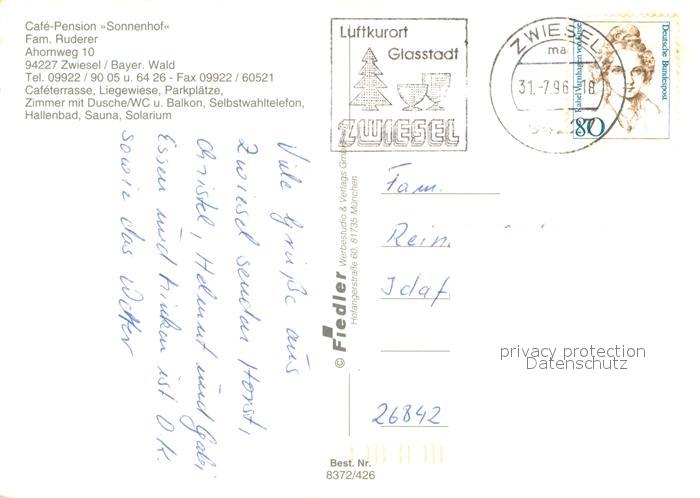 Café-Pension »Sonnenhof«
Fam. Ruderer
Ahornweg 10
94227 Zwiesel / Bayer. Wald
Tel. 09922 / 90 05 u. 64 26 - Fax 09922 / 60521
Caféterrasse, Liegewiese, Parkplätze,
Zimmer mit Dusche/WC u. Balkon, Selbstwahltelefon,
Hallenbad, Sauna, Solarium
Viele Grüße aus
Zwiesel senden Horst,
Christel, Helmut und Gabi
Essen und trinken ist O.K.
sowie das Wetter
© Fiedler Werbestudio & Verlags GmbH
Hofangerstraße 60, 81735 München
Luftkurort
Glasstadt
ZWIESEL
ZWIESEL
ma
31.-7.96-18
Deutsche Bundespost
Rahel Varnhagen von Ense
80
Fam.
Rein
Idaf
26842
privacy protection
Datenschutz
Best. Nr.
8372/426